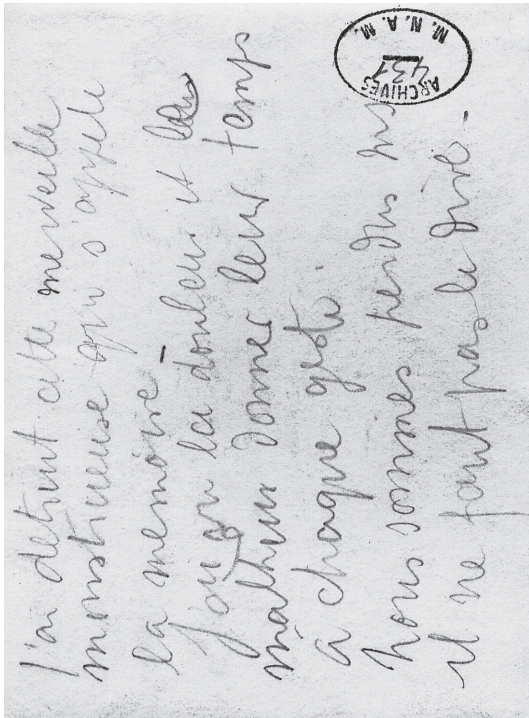 J'ai détruit cette merveille
monstrueuse qui s'appele
la mémoire –
la douleur et
malheur donner leur temps
à chaque geste.
nous sommes perdus ms
il ne faut pas le dire.
M. N. A. M.
ARCHIVES